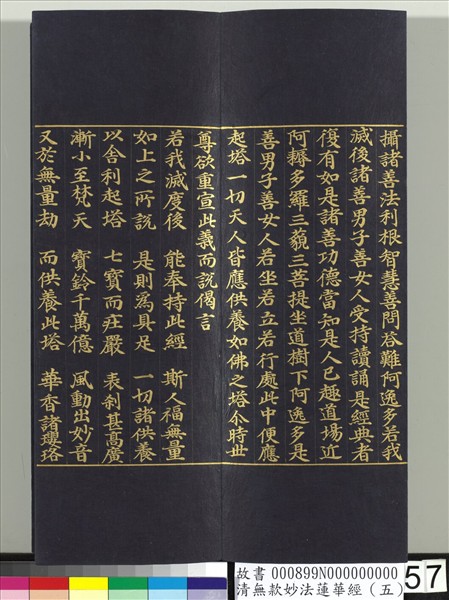 攝諸善法利根智慧善問荅難阿逸多若我
滅後諸善男子善女人受持讀誦是經典者
復有如是諸善功德當知是人已趣道場近
阿耨多羅三藐三菩提坐道樹下阿逸多是
善男子善女人若坐若立若行處此中便應
起塔一切天人皆應供養如佛之塔尒時世
尊欲重宣此義而說偈言
若我滅度後 能奉持此經 斯人福無量
如上之所說 是則為具足 一切諸供養
以舍利起塔 七寶而莊嚴 表剎甚高廣
漸小至梵天 寶鈴千萬億 風動出妙音
又於無量劫 而供養此塔 華香諸瓔珞
故書 000899N000000000
清無款妙法蓮華經（五）
57